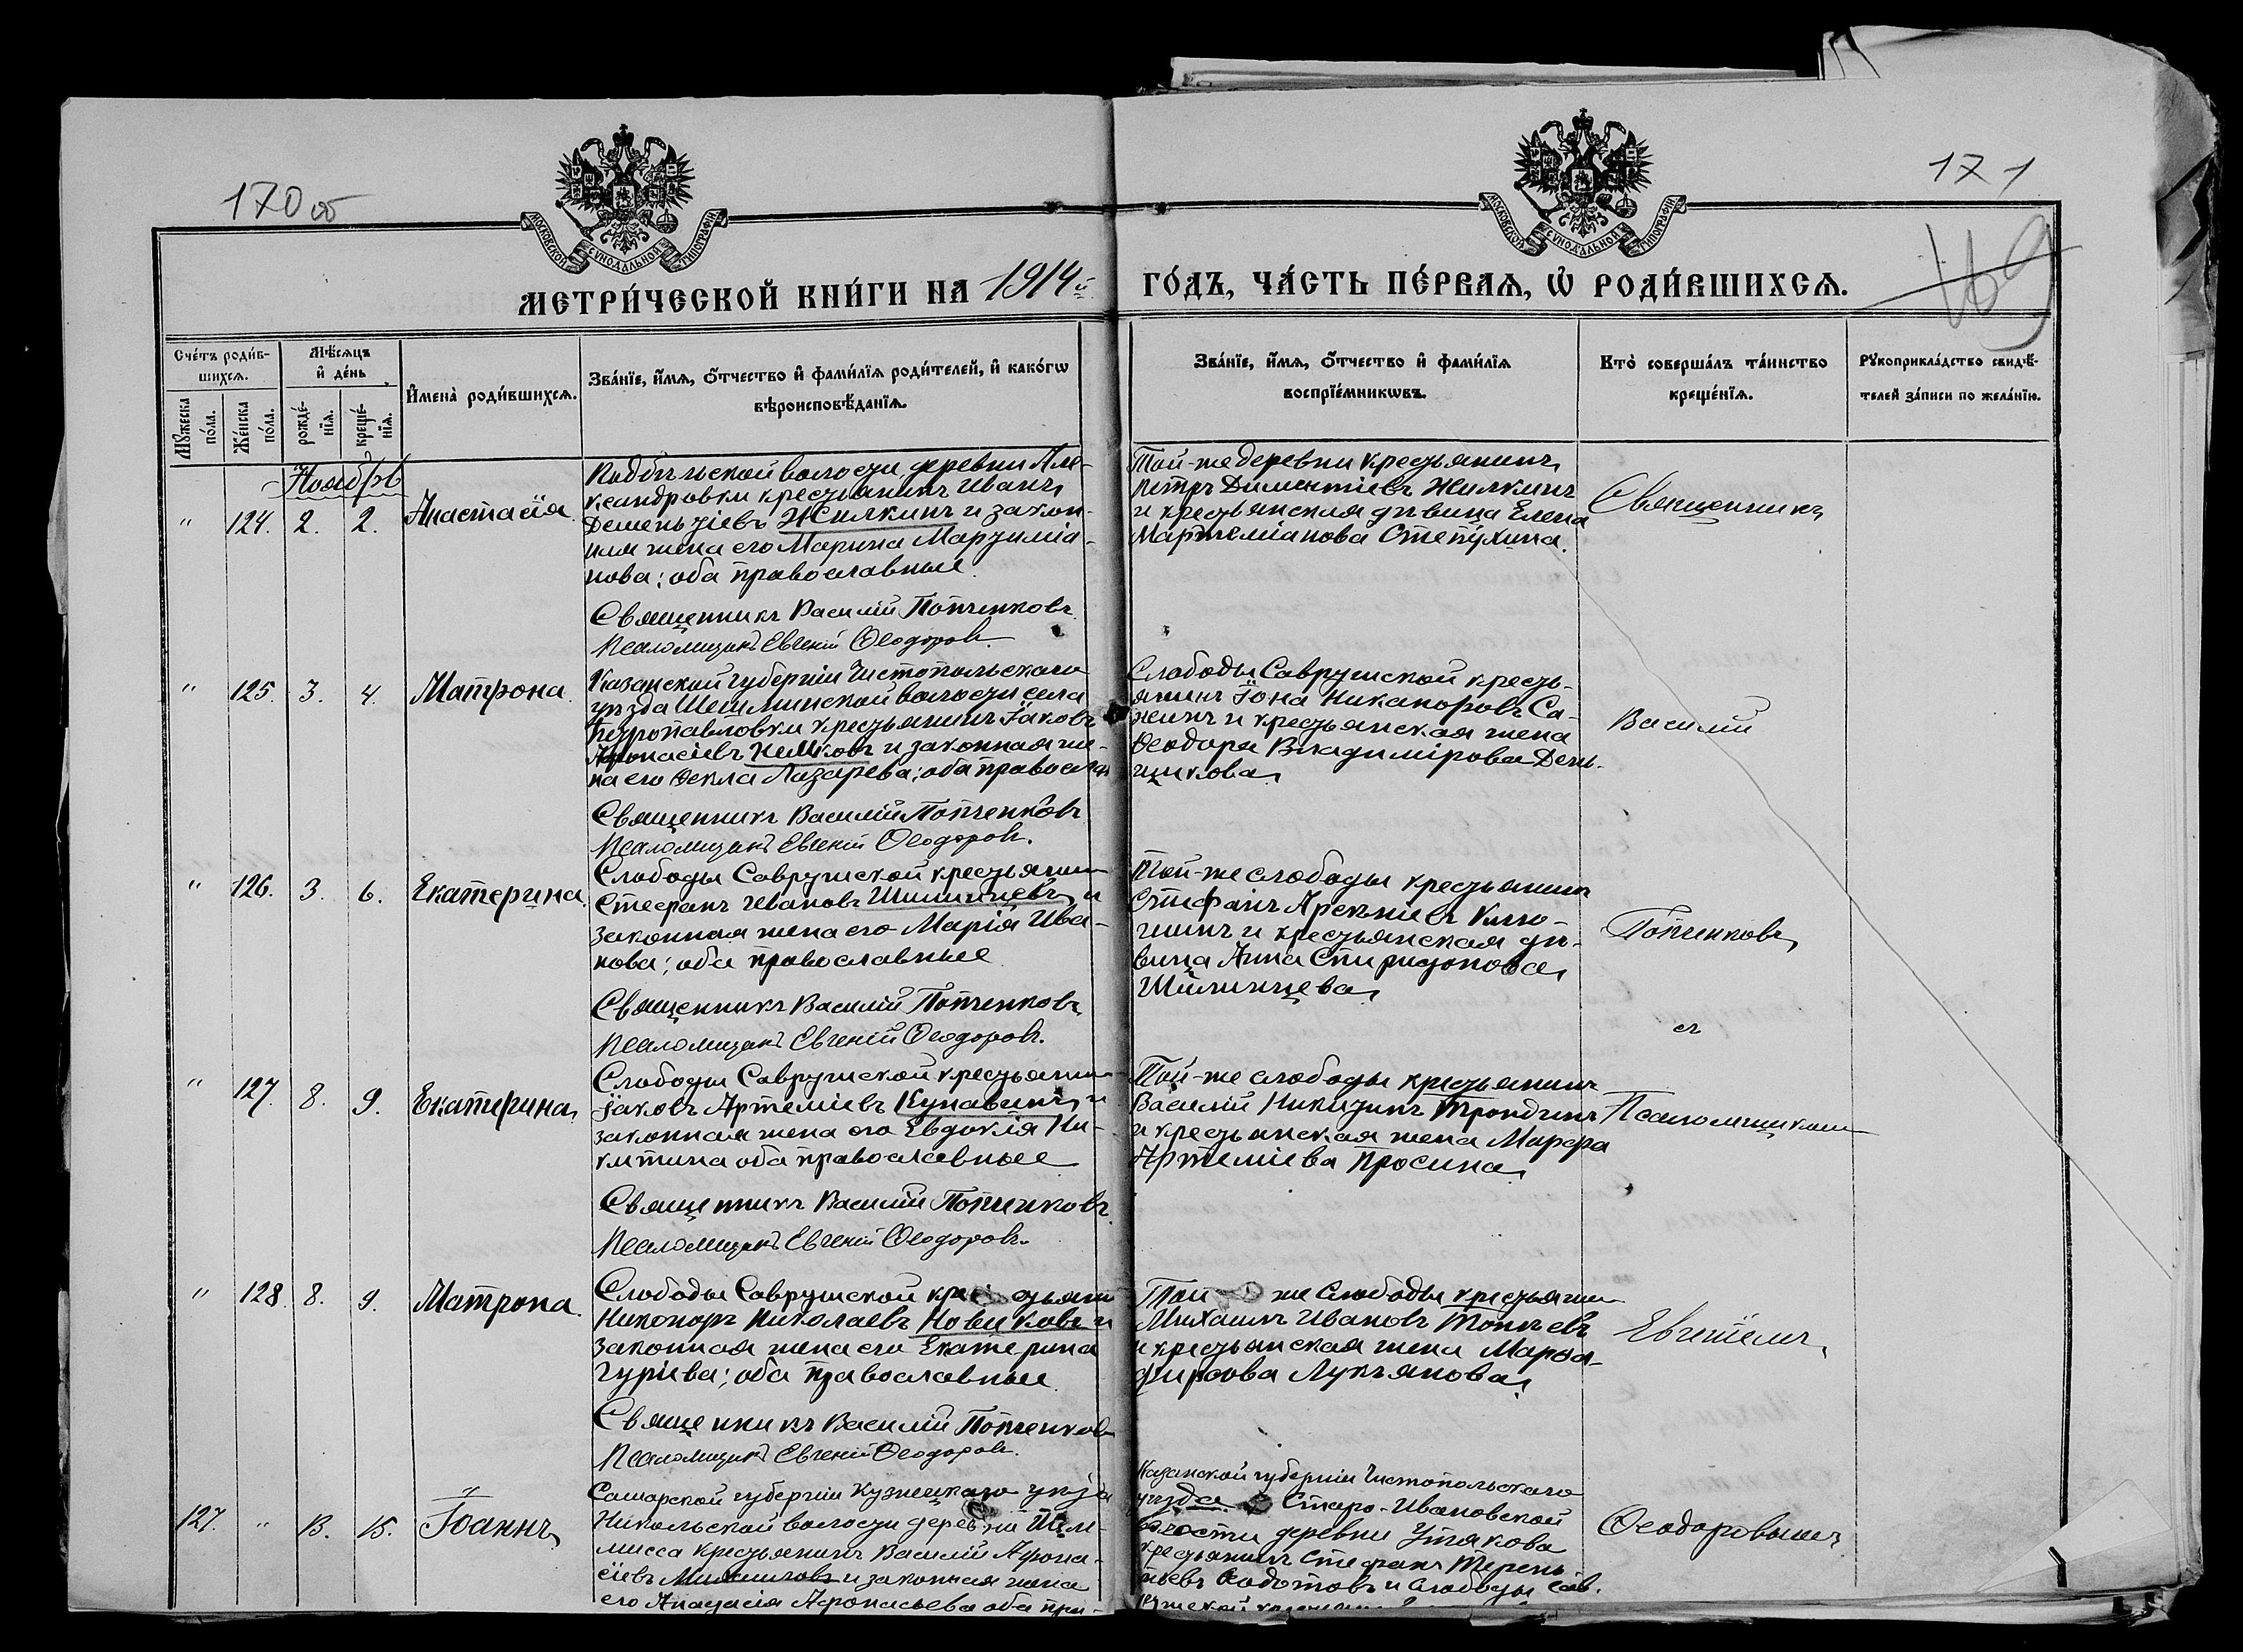 170 об
171
169
МОСКОВСКОЙ СѴНОДАЛЬНОЙ ТИПОГРАФІИ
МОСКОВСКОЙ СѴНОДАЛЬНОЙ ТИПОГРАФІИ
МЕТРИ́ЧЕСКОЙ КНИ́ГИ НА 1914й
ГО́ДЪ, ЧА́СТЬ ПЕ́РВАѦ, Ѡ҆ РОДИ́ВШИХСѦ.
Сче́тъ роди́в-
шихсѧ.
Мꙋ́жеска по́ла.
Же́нска по́ла.
Мѣ́сѧцъ
и҆ де́нь
рожде́-
нїѧ.
креще́-
нїѧ.
И҆мена̀ роди́вшихсѧ.
Зва́нїе, и҆́мѧ, ѻ҆́тчество и҆ фами́лїѧ роди́телей, и҆ како́гѡ
вѣроисповѣ́данїѧ.
Зва́нїе, и҆́мѧ, ѻ҆́тчество и҆ фами́лїѧ
воспрїе́мникѡвъ.
Кто̀ соверша́лъ та́инство
креще́нїѧ.
Рꙋкоприкла́дство свидѣ́-
телей за́писи по жела́нїю.
Ноябрь
" 124. 2. 2. Анастасія
волости деревни Але-
ксандровки крестьянинъ Иванъ
Дементіевъ Жилкинъ и закон-
ная жена его Марина Мартиміа-
нова; оба православные
Священникъ Василій Попченковъ
Псаломщикъ Евгеній Ѳеодоровъ.
Той-же деревни крестьянинъ
Петръ Диментіевъ Жилкинъ
и крестьянская дѣвица Елена
Мартеміанова Степухина.
Священникъ
" 125. 3. 4. Матрона
Казанской губерніи Чистопольскаго
уѣзда Шешминской волости села
Петропавловки крестьянинъ Іаковъ
Афонасіевъ и законная же-
на его Ѳекла Лазарева; оба правосл
Священникъ Василій Попченковъ
Псаломщикъ Евгеній Ѳеодоровъ.
Слободы Саврушской кресть-
янинъ Іона Никаноровъ Са-
жинъ и крестьянская жена
Ѳеодора Владимірова День-
щикова
Василій
" 126. 3. 6. Екатерина
Слободы Саврушской крестьянин
Стефанъ Ивановъ Шишинцевъ и
законная жена его Марія Ива-
нова; оба православные
Священникъ Василій Попченковъ
Псаломщикъ Евгеній Ѳеодоровъ.
Той-же слободы крестьянинъ
Стефанъ Арсеніевъ
и крестьянская дѣ-
вица Анна Спиридонова
Шишинцева
Попченковъ
съ
" 127. 8. 9. Екатерина
Слободы Саврушской крестьянин
Іаковъ Артеміевъ Купавинъ и
законная жена его Евдокія Ни-
китина оба православные
Священникъ Василій Попченковъ
Псаломщикъ Евгеній Ѳеодоровъ.
Той-же слободы крестьянинъ
Василій Никитинъ Трондинъ
и крестьянская жена Марфа
Артеміева Просина
Псаломщикомъ
" 128. 8. 9. Матрона
Слободы Саврушской крестьянин
Никоноръ Николаевъ Новиковъ и
законная жена его Екатерина
Гуріева; оба православные
Священникъ Василій Попченковъ
Псаломщикъ Евгеній Ѳеодоровъ.
Той же Слободы крестьянин
Михаилъ Ивановъ
и крестьянская жена Марѳа
Фирсова Лукьянова
Евгеніемъ
127. " 13. 15. Іоаннъ
Самарской губерніи Кузнецкаго уѣзда
Никольской волости деревни
крестьянинъ Василій Афона-
сіевъ и законная жена
его Анастасія Афонасьева оба пра-
Казанской губерніи Чистопольскаго
уѣзда Старо-Ивановской
волости деревни Утякова
крестьянинъ Стефанъ Терень
тьевъ Ѳедотовъ и слободы Сав-
рушской
Ѳеодоровымъ